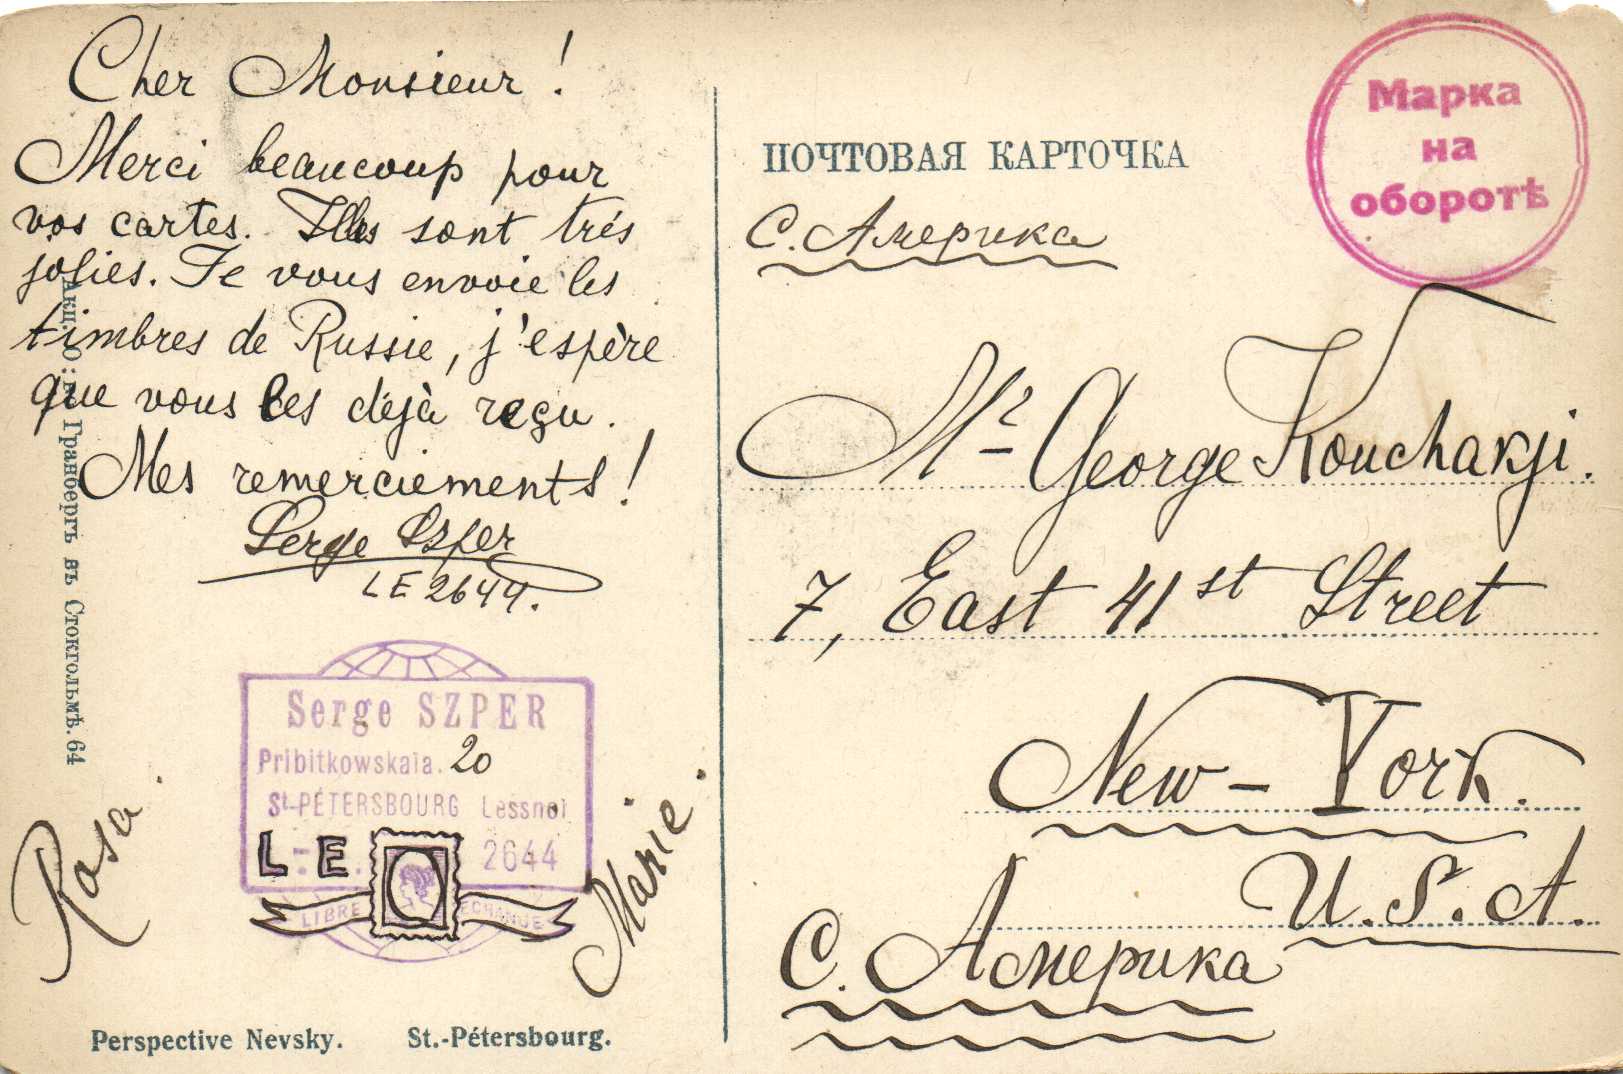 Cher Monsieur !
Merci beaucoup pour
vos cartes. Illes sont trés
jolies. Je vous envoie les
timbres de Russie, j'espère
que vous les déjà reçu.
Mes remerciements !
Serge Szper
LE 2644.
Serge SZPER
Pribitkowskaïa. 20
St-PÉTERSBOURG Lessnoï
LE 2644
LIBRE ECHANGE
Rosa.
Marie.
Perspective Nevsky. St.-Pétersbourg.
Акц. О: во Гранбергъ въ Стокгольмѣ. 64
ПОЧТОВАЯ КАРТОЧКА
Марка
на
оборотѣ
С. Америка
Mr George Kouchakji.
7, East 41st Street
New-York.
U.S.A.
С. Америка